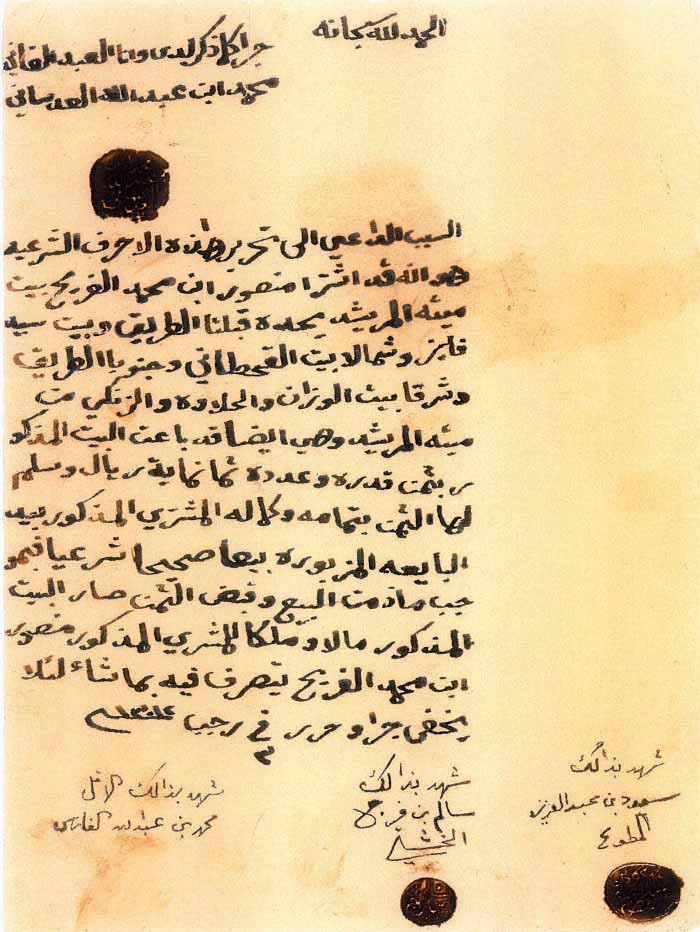 الحمد لله سبحانه
جرا كما ذكر لدي وانا العبد الفاني
محمد ابن عبد الله العدساني
السبب الداعي الى تحرير هذه الاحرف الشرعيه
هو انه قد اشترا منصور ابن محمد الفريح بيت
ميثه المريشد يحده قبلتا الطريق وبيت سيد
فايز وشمالا بيت القحطاني وجنوبا الطريق
وشرقا بيت الوزان والحلاوه والزنكي من
ميثه المريشد وهي ايضا قد باعت البيت المذكو
ر بثمن قدره وعدده ثمانماية ريال وسلم
لها الثمن بتمامه وكماله المشتري المذكور بيد
البايعه المزبوره بيعا صحيحا شرعيا فبمو
جب ماذ من البيع وقبض الثمن صار البيت
المذكور مالا وملكا للمشري المذكور منصور
ابن محمد الفريح يتصرف فيه بما شاء لئلا
يخفى جرا وحرر في رجب
شهد بذالك
سعود بن عبد العزيز
المطوع
شهد بذالك
سالم بن فرج
شهد بذالك الاقل
محمد بن عبد الله الفارس